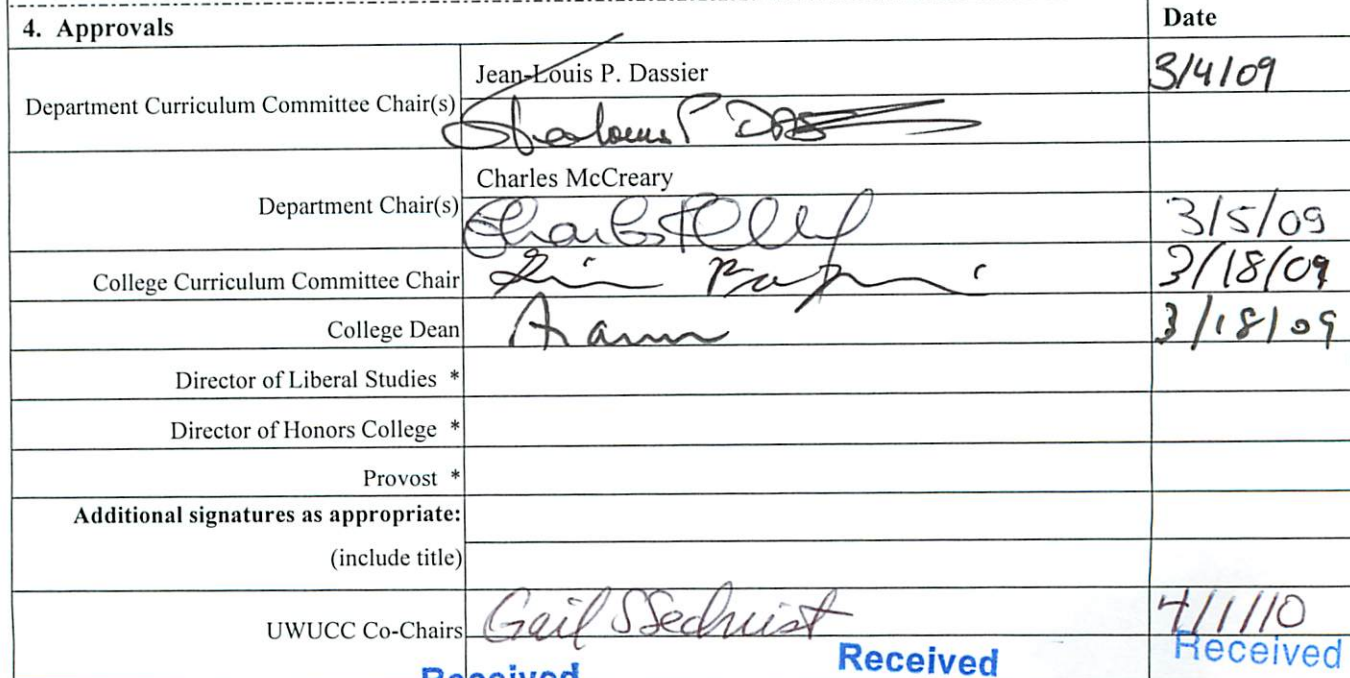 4. Approvals
Date
Jean-Louis P. Dassier
3/4/09
Department Curriculum Committee Chair(s)
Charles McCreary
Department Chair(s)
3/5/09
College Curriculum Committee Chair
3/18/09
College Dean
3/18/09
Director of Liberal Studies *
Director of Honors College *
Provost *
Additional signatures as appropriate:
(include title)
UWUCC Co-Chairs Gail S Sechrist 4/1/10
Received Received Received